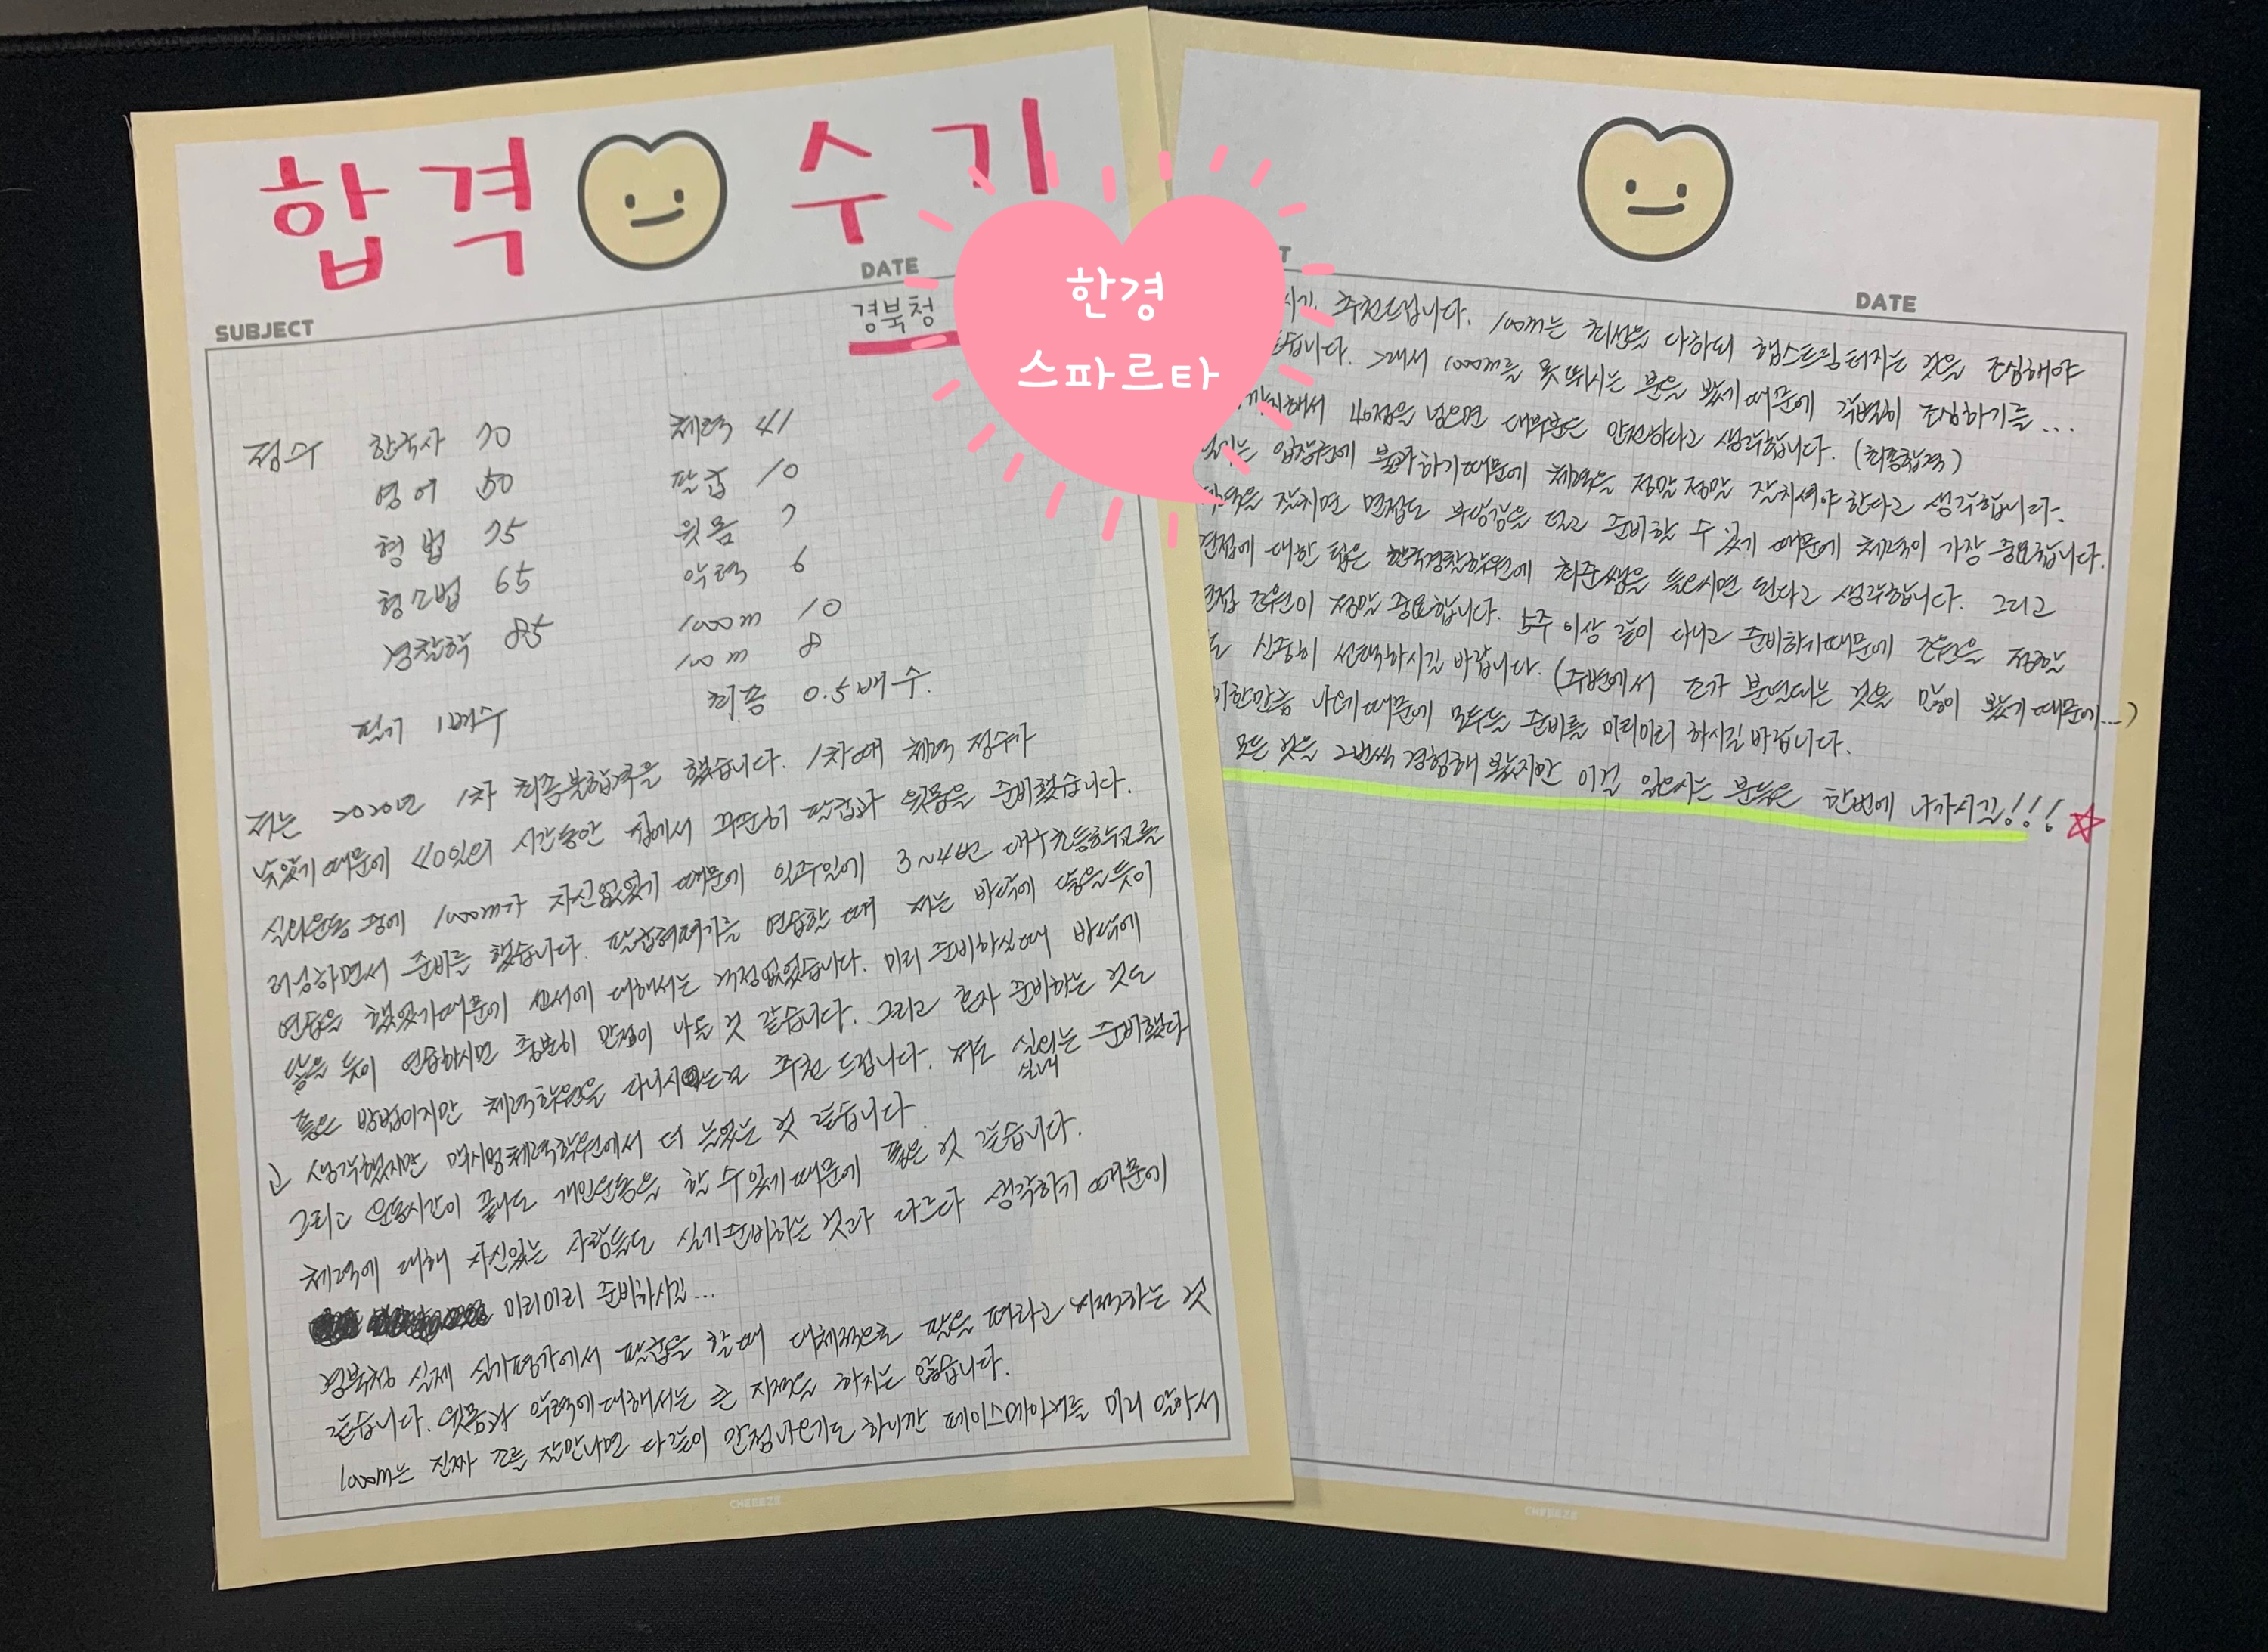 합격 수기
SUBJECT
DATE
경북청
한경
스파르타
점수 한국사 70 체력 41
영어 50 팔굽 10
형법 75 윗몸 7
형소법 65 악력 6
경찰학 85 1000m 10
100m 8
필기 1배수 최종 0.5배수.
저는 2020년 1차 최종불합격을 했습니다. 1차때 체력 점수가
낮았기 때문에 40일의 시간동안 집에서 꾸준히 팔굽과 윗몸을 준비했습니다.
실외운동 중에 1000m가 자신없었기 때문에 일주일에 3~4번 초등학교를
러닝하면서 준비를 했습니다. 팔굽혀펴기를 연습할 때 저는 바닥에 닿을듯이
연습을 했었기때문에 에 대해서는 걱정없었습니다. 미리 준비하실때 바닥에
닿을 듯이 연습하시면 충분히 만점이 나올 것 같습니다. 그리고 혼자 준비하는 것도
좋은 방법이지만 체력학원을 다니시는걸 추천 드립니다. 저도 실외는 준비했다
실내
고 생각했지만 체력학원에서 더 늘었는 것 같습니다.
그리고 운동시간이 끝나도 개인운동을 할 수 있기때문에 좋은 것 같습니다.
체력에 대해 자신있는 사람들도 실기준비하는 것과 다르다 생각하기 때문에
미리미리 준비하시길...
경북청 실제 실기평가에서 팔굽을 할때 대체적으로 팔을 펴라고 지적하는 것
같습니다. 윗몸과 악력에 대해서는 큰 지적을 하지는 않습니다.
1000m는 진짜 조를 잘만나면 다같이 만점나오기도 하니깐 페이스메이커를 미리 알아서
DATE
시기 추천드립니다. 100m는 최선을 다하되 햄스트링터지는 것을 조심해야
듯합니다. 그래서 1000m를 못 뛰시는 분을 봤기때문에 각별히 조심하기를...
해서 40점을 넘으면 대부분은 안전하다고 생각합니다. (최종합격)
는 입장권에 불과하기때문에 체력은 정말정말 잘치셔야 한다고 생각합니다.
체력을 잘치면 면접도 부담감을 덜고 준비할 수 있기 때문에 체력이 가장 중요합니다.
면접에 대한 팁은 한국경찰학원에 최준쌤을 들으시면 된다고 생각합니다. 그리고
면접 조원이 정말 중요합니다. 5주 이상 같이 다니고 준비하기때문에 조원을 정말
신중히 선택하시길 바랍니다. (주변에서 조가 분열되는 것을 많이 봤기 때문에...)
비한만큼 나오기때문에 모두들 준비를 미리미리 하시길 바랍니다.
모든 것을 2번씩 경험해 봤지만 이걸 읽으시는 분들은 한번에 나가시길!!!
CHEEEZE
CHEEEZE